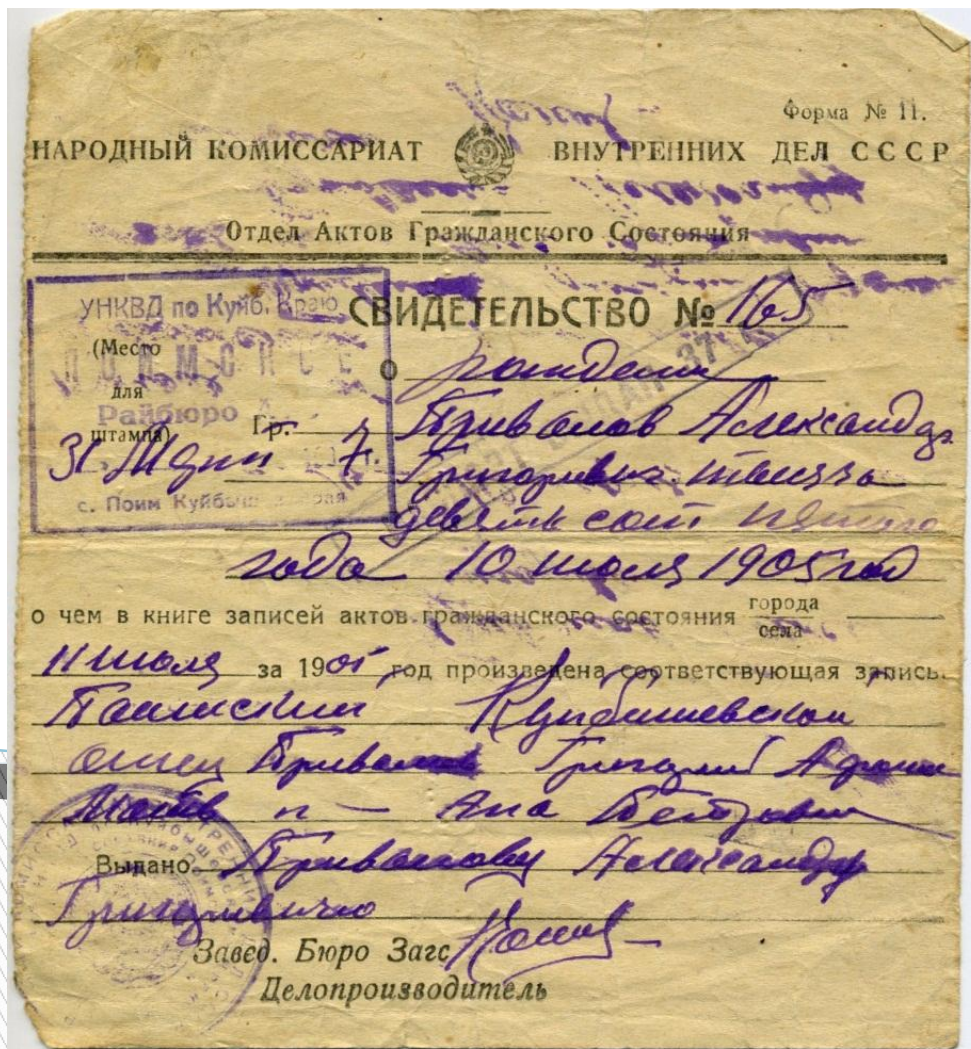 Форма № 11.
НАРОДНЫЙ КОМИССАРИАТ ВНУТРЕННИХ ДЕЛ СССР
Отдел Актов Гражданского Состояния
УНКВД по Куйб. Краю
СВИДЕТЕЛЬСТВО № 165
(Место для штампа)
ПОИМСКОЕ
Райбюро
31 7 г.
с. Поим Куйбыш. края
о рождении
Гр. Привалов Александр
Григорьевич тысяча
девятьсот пятого
года 10 июля 1905 год
о чем в книге записей актов гражданского состояния города села
11 июля за 1905 год произведена соответствующая запись.
Куйбышевской
отец Привалов Григорий
Мать п — Ана Петровна
Выдано Привалову Александру
Григорьевичю
Завед. Бюро Загс
Делопроизводитель